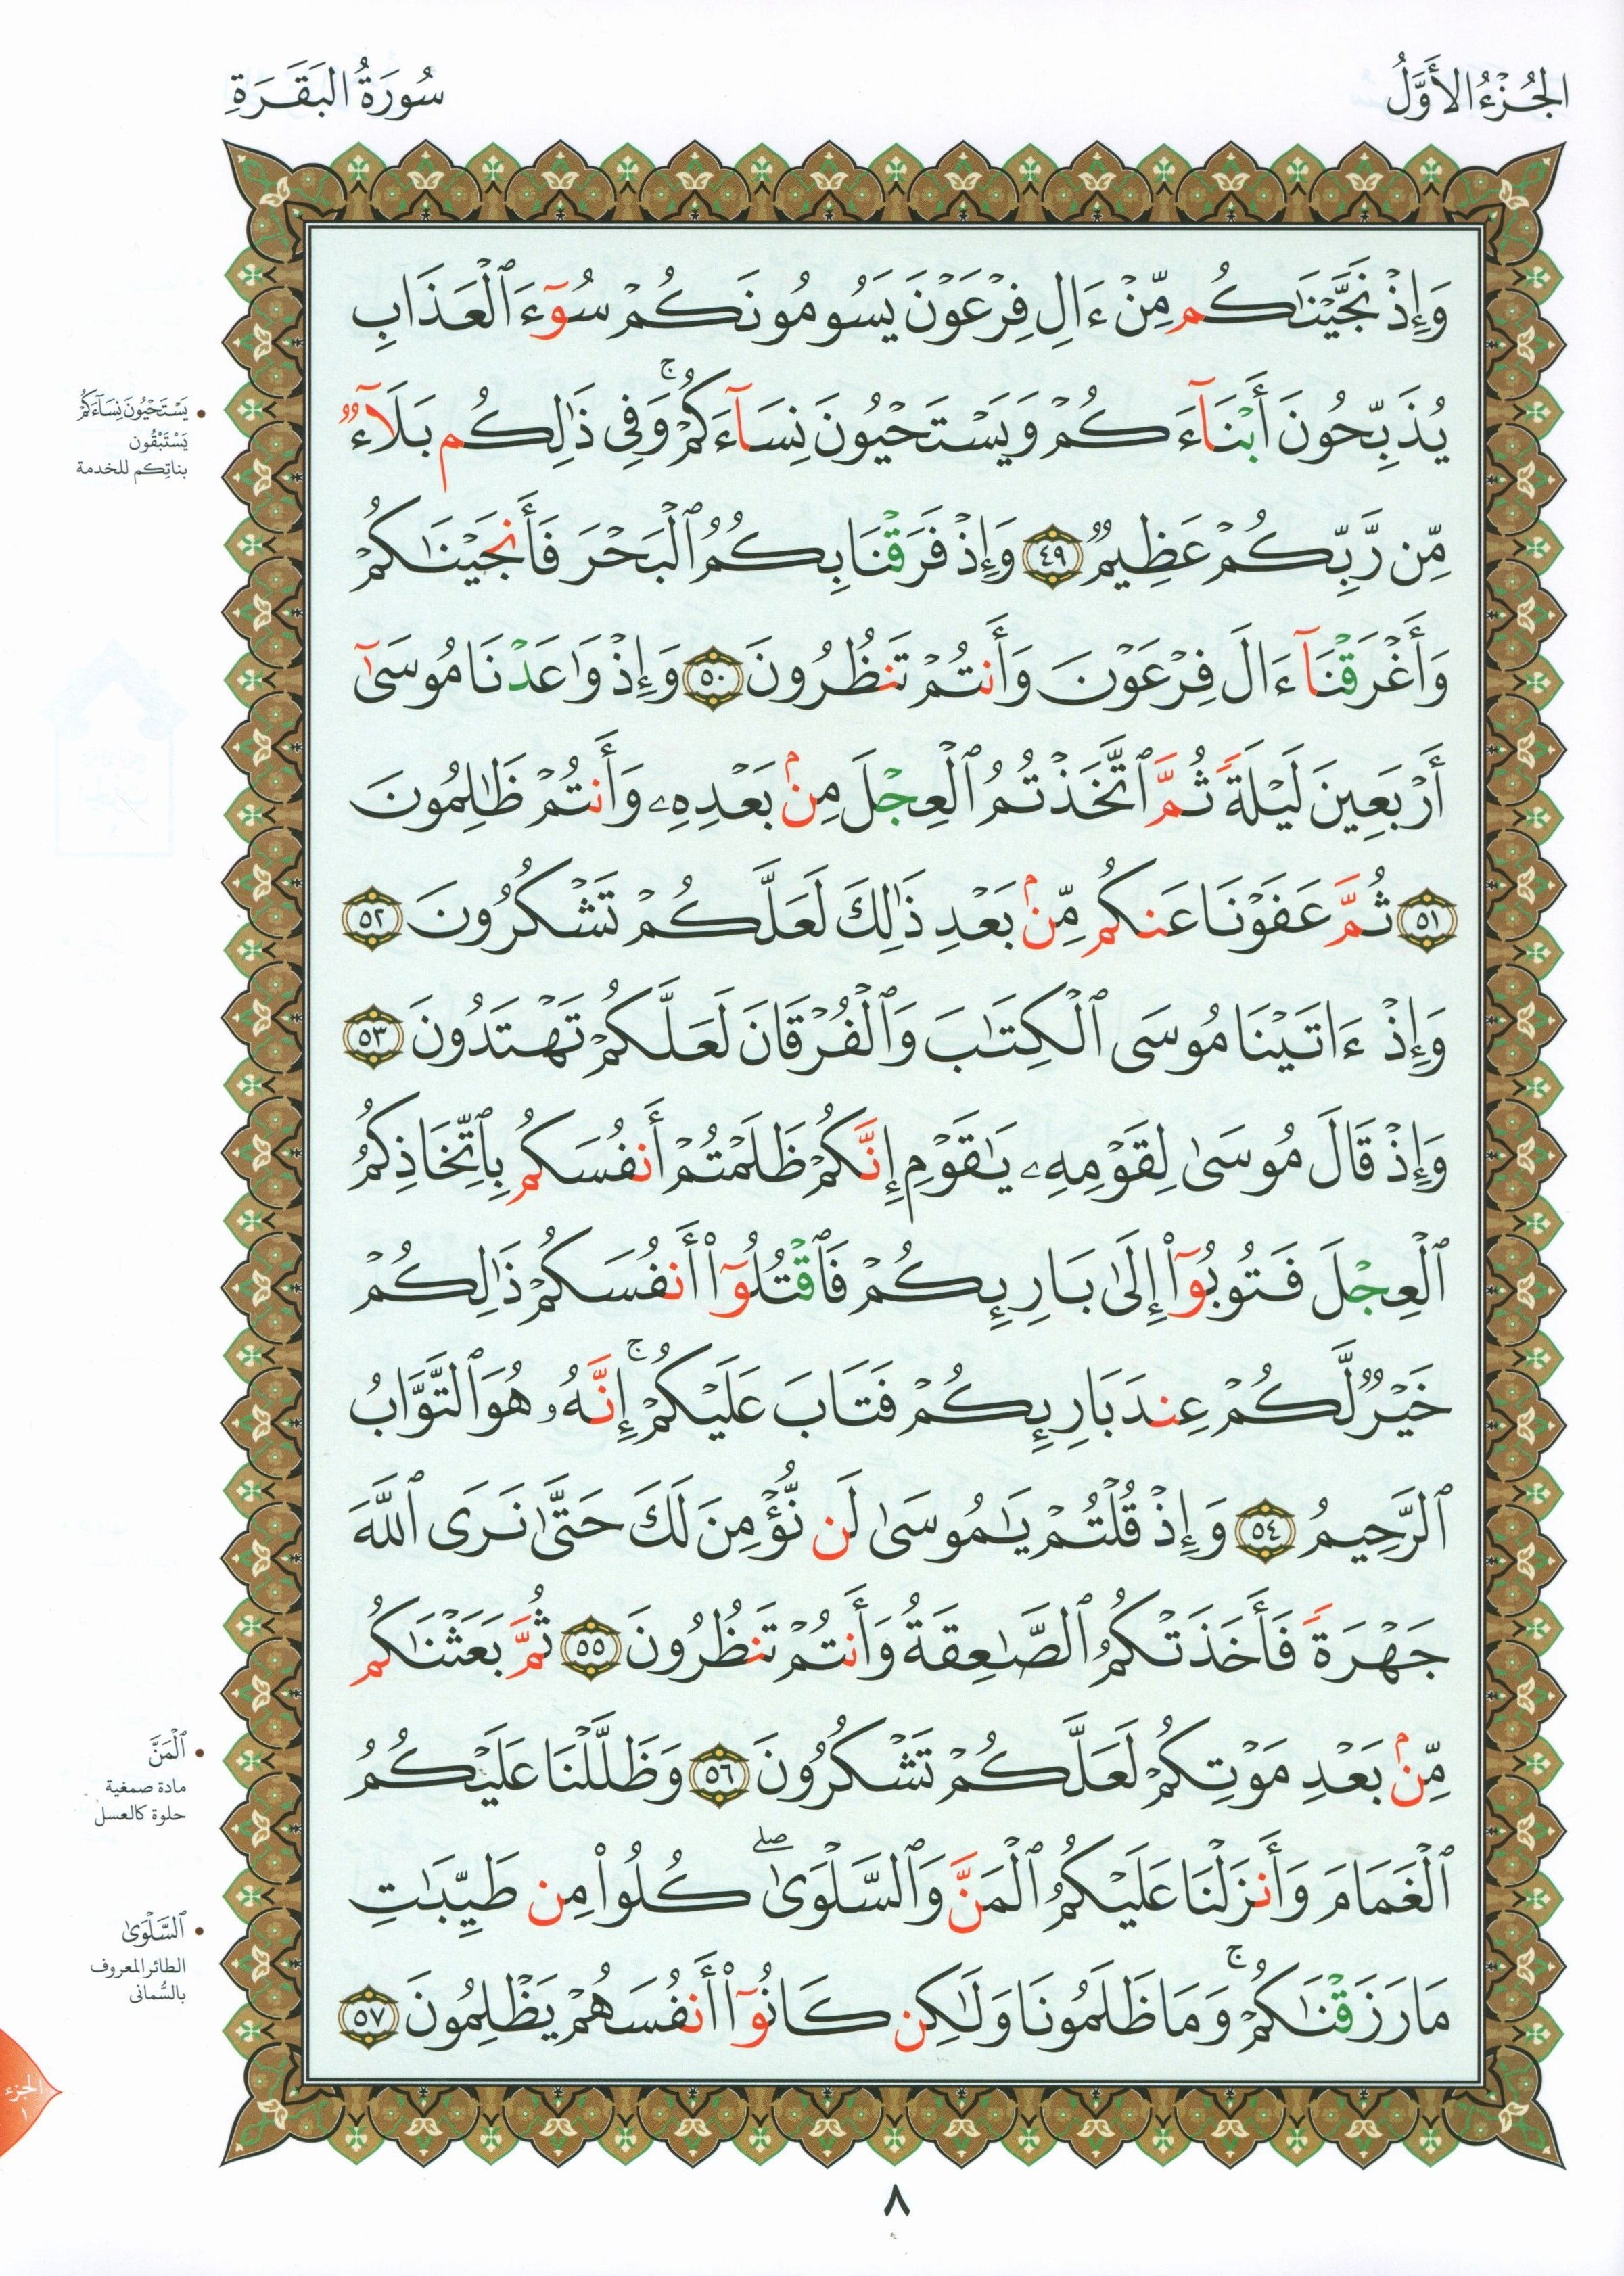 الجُزْءُ الأَوَّلُ
سُورَةُ البَقَرَةِ
وَإِذْ نَجَّيْنَٰكُم مِّنْ ءَالِ فِرْعَوْنَ يَسُومُونَكُمْ سُوٓءَ ٱلْعَذَابِ
يُذَبِّحُونَ أَبْنَآءَكُمْ وَيَسْتَحْيُونَ نِسَآءَكُمْ ۚ وَفِى ذَٰلِكُم بَلَآءٌ
مِّن رَّبِّكُمْ عَظِيمٌ ٤٩ وَإِذْ فَرَقْنَا بِكُمُ ٱلْبَحْرَ فَأَنجَيْنَٰكُمْ
وَأَغْرَقْنَآ ءَالَ فِرْعَوْنَ وَأَنتُمْ تَنظُرُونَ ٥٠ وَإِذْ وَٰعَدْنَا مُوسَىٰٓ
أَرْبَعِينَ لَيْلَةً ثُمَّ ٱتَّخَذْتُمُ ٱلْعِجْلَ مِنۢ بَعْدِهِۦ وَأَنتُمْ ظَٰلِمُونَ
٥١ ثُمَّ عَفَوْنَا عَنكُم مِّنۢ بَعْدِ ذَٰلِكَ لَعَلَّكُمْ تَشْكُرُونَ ٥٢
وَإِذْ ءَاتَيْنَا مُوسَى ٱلْكِتَٰبَ وَٱلْفُرْقَانَ لَعَلَّكُمْ تَهْتَدُونَ ٥٣
وَإِذْ قَالَ مُوسَىٰ لِقَوْمِهِۦ يَٰقَوْمِ إِنَّكُمْ ظَلَمْتُمْ أَنفُسَكُم بِٱتِّخَاذِكُمُ
ٱلْعِجْلَ فَتُوبُوٓا۟ إِلَىٰ بَارِئِكُمْ فَٱقْتُلُوٓا۟ أَنفُسَكُمْ ذَٰلِكُمْ
خَيْرٌ لَّكُمْ عِندَ بَارِئِكُمْ فَتَابَ عَلَيْكُمْ ۚ إِنَّهُۥ هُوَ ٱلتَّوَّابُ
ٱلرَّحِيمُ ٥٤ وَإِذْ قُلْتُمْ يَٰمُوسَىٰ لَن نُّؤْمِنَ لَكَ حَتَّىٰ نَرَى ٱللَّهَ
جَهْرَةً فَأَخَذَتْكُمُ ٱلصَّٰعِقَةُ وَأَنتُمْ تَنظُرُونَ ٥٥ ثُمَّ بَعَثْنَٰكُم
مِّنۢ بَعْدِ مَوْتِكُمْ لَعَلَّكُمْ تَشْكُرُونَ ٥٦ وَظَلَّلْنَا عَلَيْكُمُ
ٱلْغَمَامَ وَأَنزَلْنَا عَلَيْكُمُ ٱلْمَنَّ وَٱلسَّلْوَىٰ ۖ كُلُوا۟ مِن طَيِّبَٰتِ
مَا رَزَقْنَٰكُمْ ۚ وَمَا ظَلَمُونَا وَلَٰكِن كَانُوٓا۟ أَنفُسَهُمْ يَظْلِمُونَ ٥٧
• يَسْتَحْيُونَ نِسَآءَكُمْ
يَسْتَبْقُون
بناتِكم للخدمة
• ٱلْمَنَّ
مادة صمغية
حلوة كالعسل
• ٱلسَّلْوَىٰ
الطائر المعروف
بالسُّمانى
الجزء
١
٨